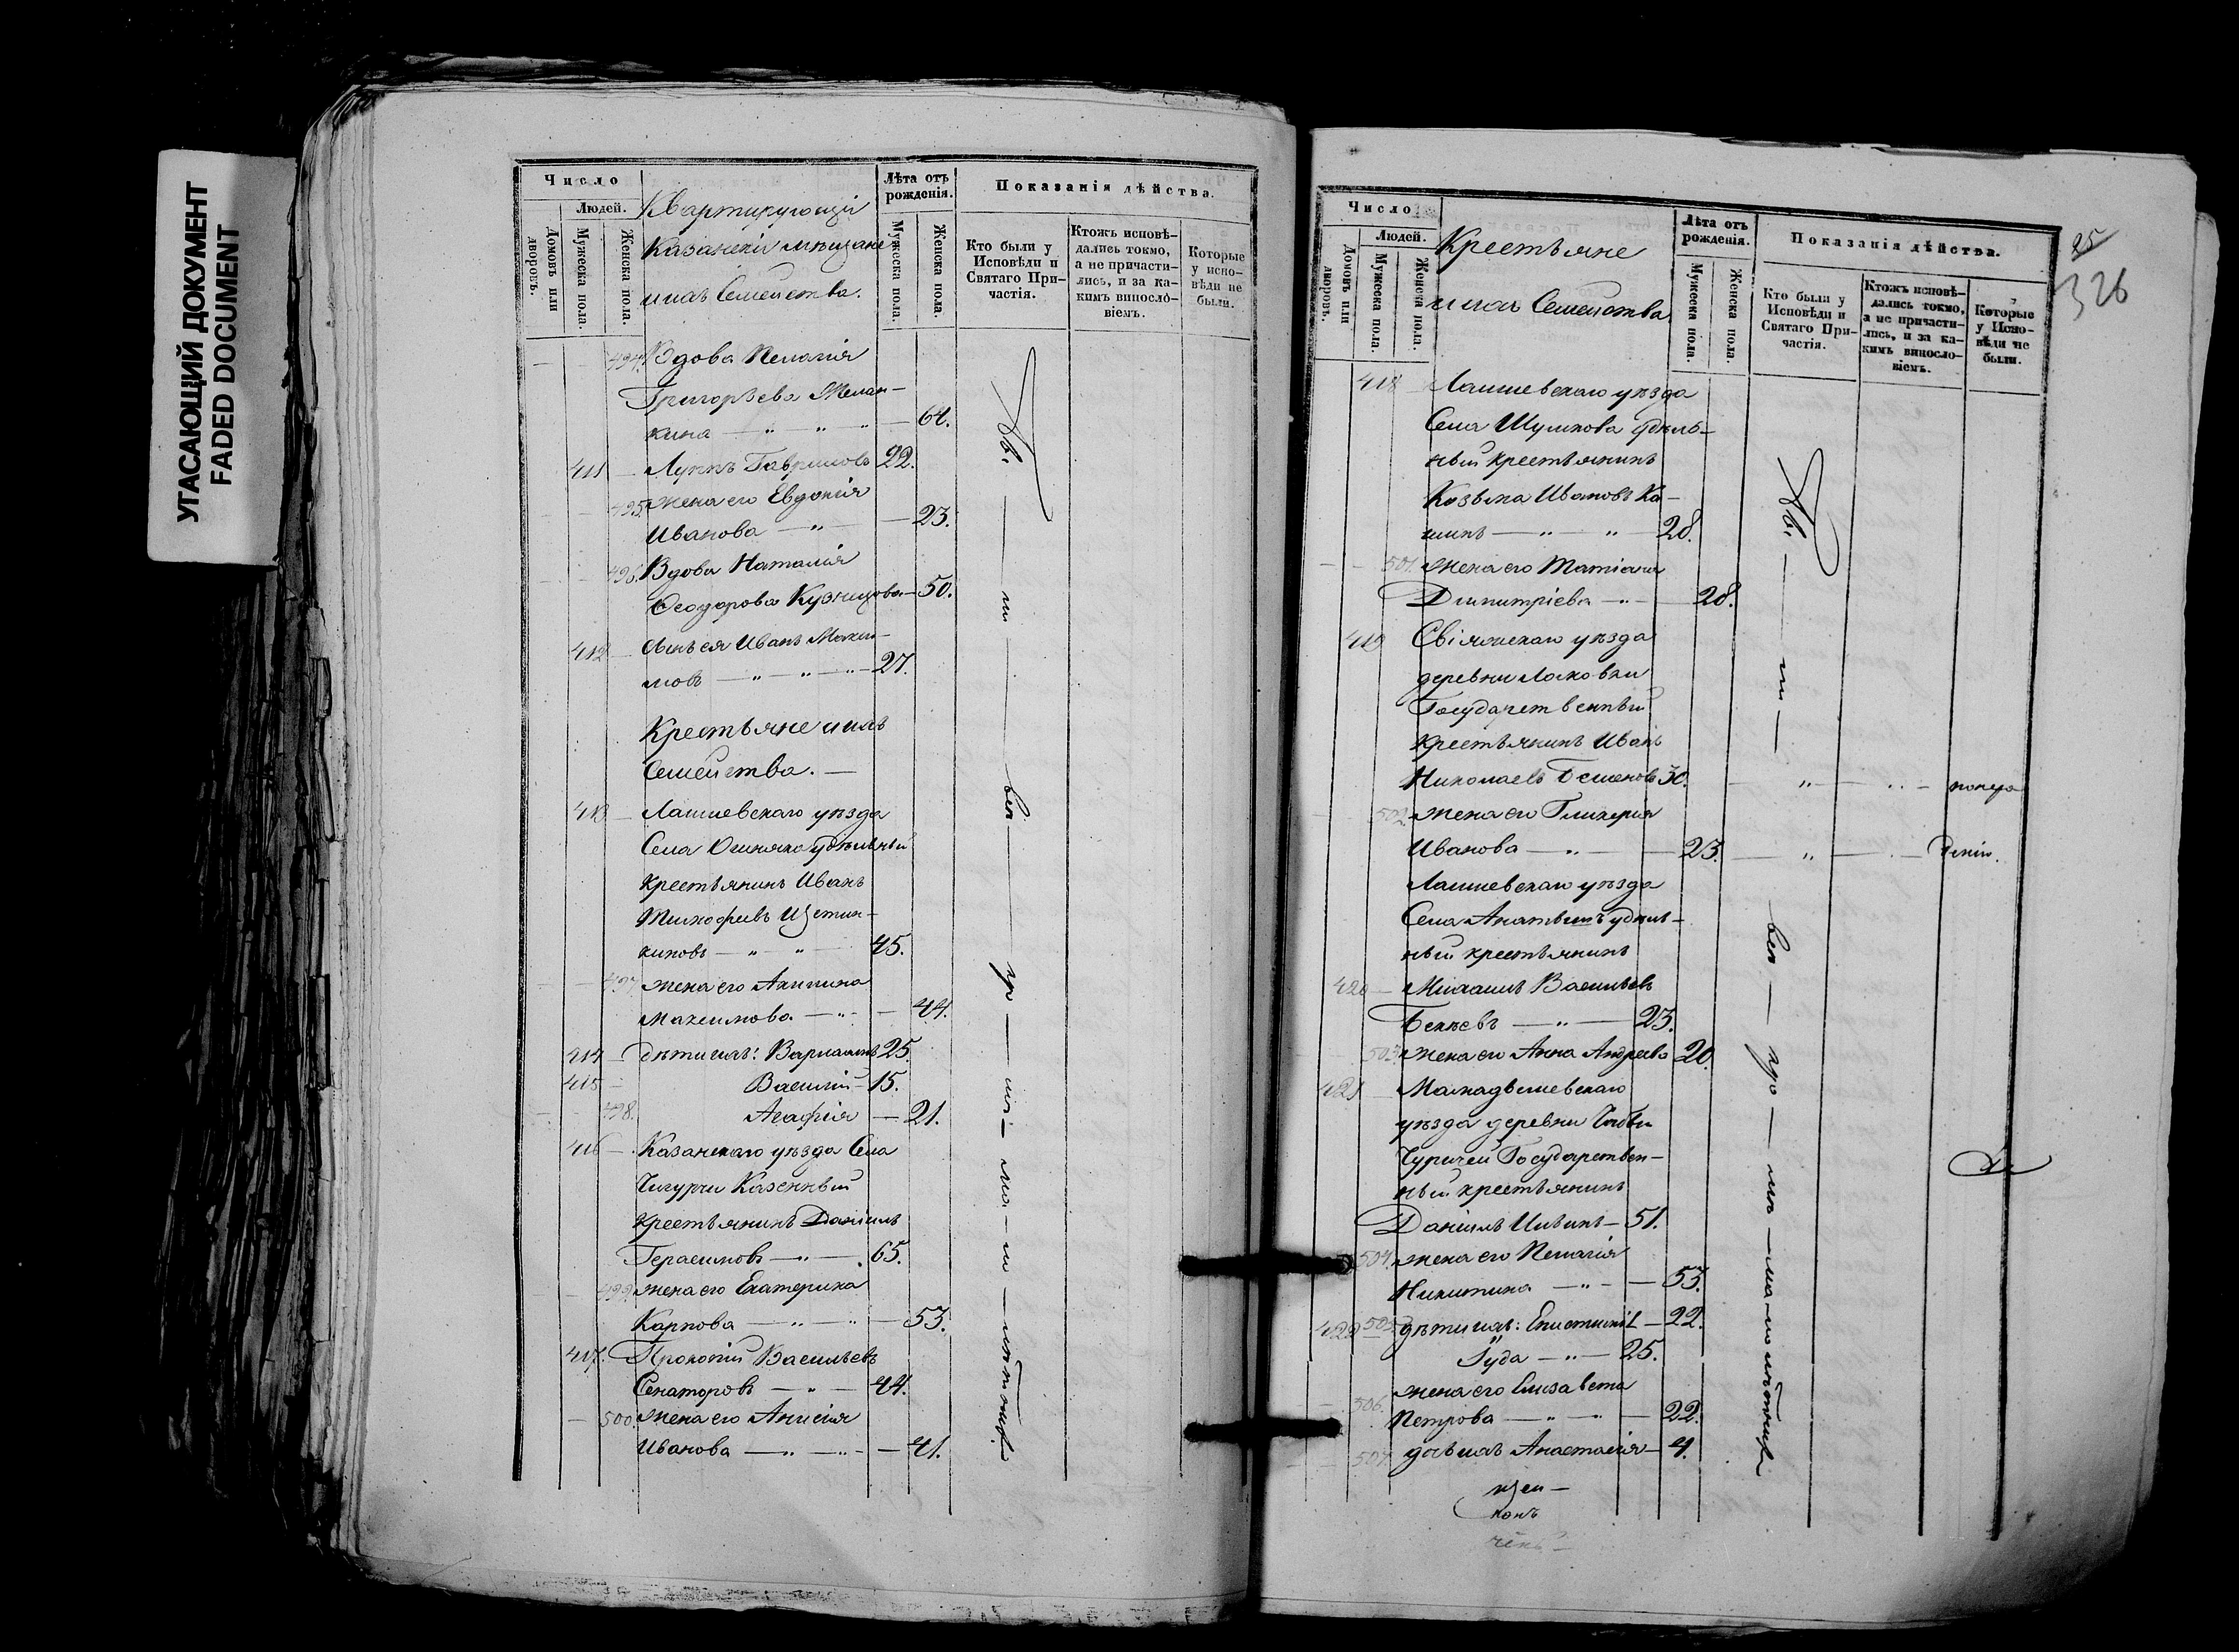 УГАСАЮЩИЙ ДОКУМЕНТ
FADED DOCUMENT
Число
Людей.
Домовъ или дворовъ.
Мужеска пола.
Женска пола.
Квартирующіи
Казанскіи мѣщане
и ихъ Семейства.
Лѣта отъ рожденія.
Мужеска пола.
Женска пола.
Показанія дѣйства.
Кто были у Исповѣди и Святаго При-
частія.
Ктожъ исповѣ-
дались токмо,
а не причасти-
лись, и за ка-
кимъ винослo-
віемъ.
Которые
у испо-
вѣди не
были.
494. Вдова Пелагія
Григорьева Мелан-
кина — " — " — " — 64.
411 — Луппъ Гавриловъ 22.
495. жена его Евдокія
Иванова — " — 23.
496. Вдова Наталія
Ѳеодорова Кузнецова — 50.
412 — сынъ ея Иванъ Макси-
мовъ — " — " — " — 27.
Крестьяне и ихъ
Семейства. —
413 — Лаишевскаго уѣзда
Села удѣльный
крестьянинъ Иванъ
Тимофеевъ Щетин-
киновъ — " — " — 45.
497. жена его Акилина
Максимова — " — 44.
414 — дѣти ихъ: Варлаамъ 25.
415 — Василій — 15.
498. Агафія — 21.
416 — Казанскаго уѣзда Села
Чигурчи Казенный
крестьянинъ Даніилъ
Герасимовъ — " — 65.
499. жена его Екатерина
Карпова — " — " — 53.
417. Прокопій Васильевъ
Сенаторовъ — " — 44.
— 500. жена его Анисія
Иванова — " — " — 41.
Число
Людей.
Домовъ или дворовъ.
Мужеска пола.
Женска пола.
Крестьяне
и ихъ Семейства
Лѣта отъ рожденія.
Мужеска пола.
Женска пола.
Показанія дѣйства.
Кто были у
Исповѣди и
Святаго При-
частія.
Ктожъ исповѣ-
дались токмо,
а не причасти-
лись, и за ка-
кимъ винослo-
віемъ.
Которые
у Испо-
вѣди не
были.
25
326
418 — Лаишевскаго уѣзда
Села Шумкова удѣль-
ный крестьянинъ
Козьма Ивановъ Ка-
шинъ — " — " — 28.
501. жена его Татіана
Димитріева — " — 28.
419 Свіяжскаго уѣзда
деревни
Государственный
крестьянинъ Иванъ
Николаевъ 30. — " — " —
502. жена его Гликерія
Иванова — " — 23. — " — " —
Лаишевскаго уѣзда
Села удѣль-
ный крестьянинъ
420 — Михаилъ Васильевъ
— " — 23.
503. жена его Анна Андреева 20.
421 — Мамадышевскаго
уѣзда деревни
Государствен-
ный крестьянинъ
Даніилъ Ильинъ — 51.
504. жена его Пелагія
Никитина — " — 53.
422 505. дѣти ихъ: — 22.
Іуда — " — 25.
506. жена его Елисавета
Петрова — " — " — 22.
507. дочь ихъ Анастасія — 4.